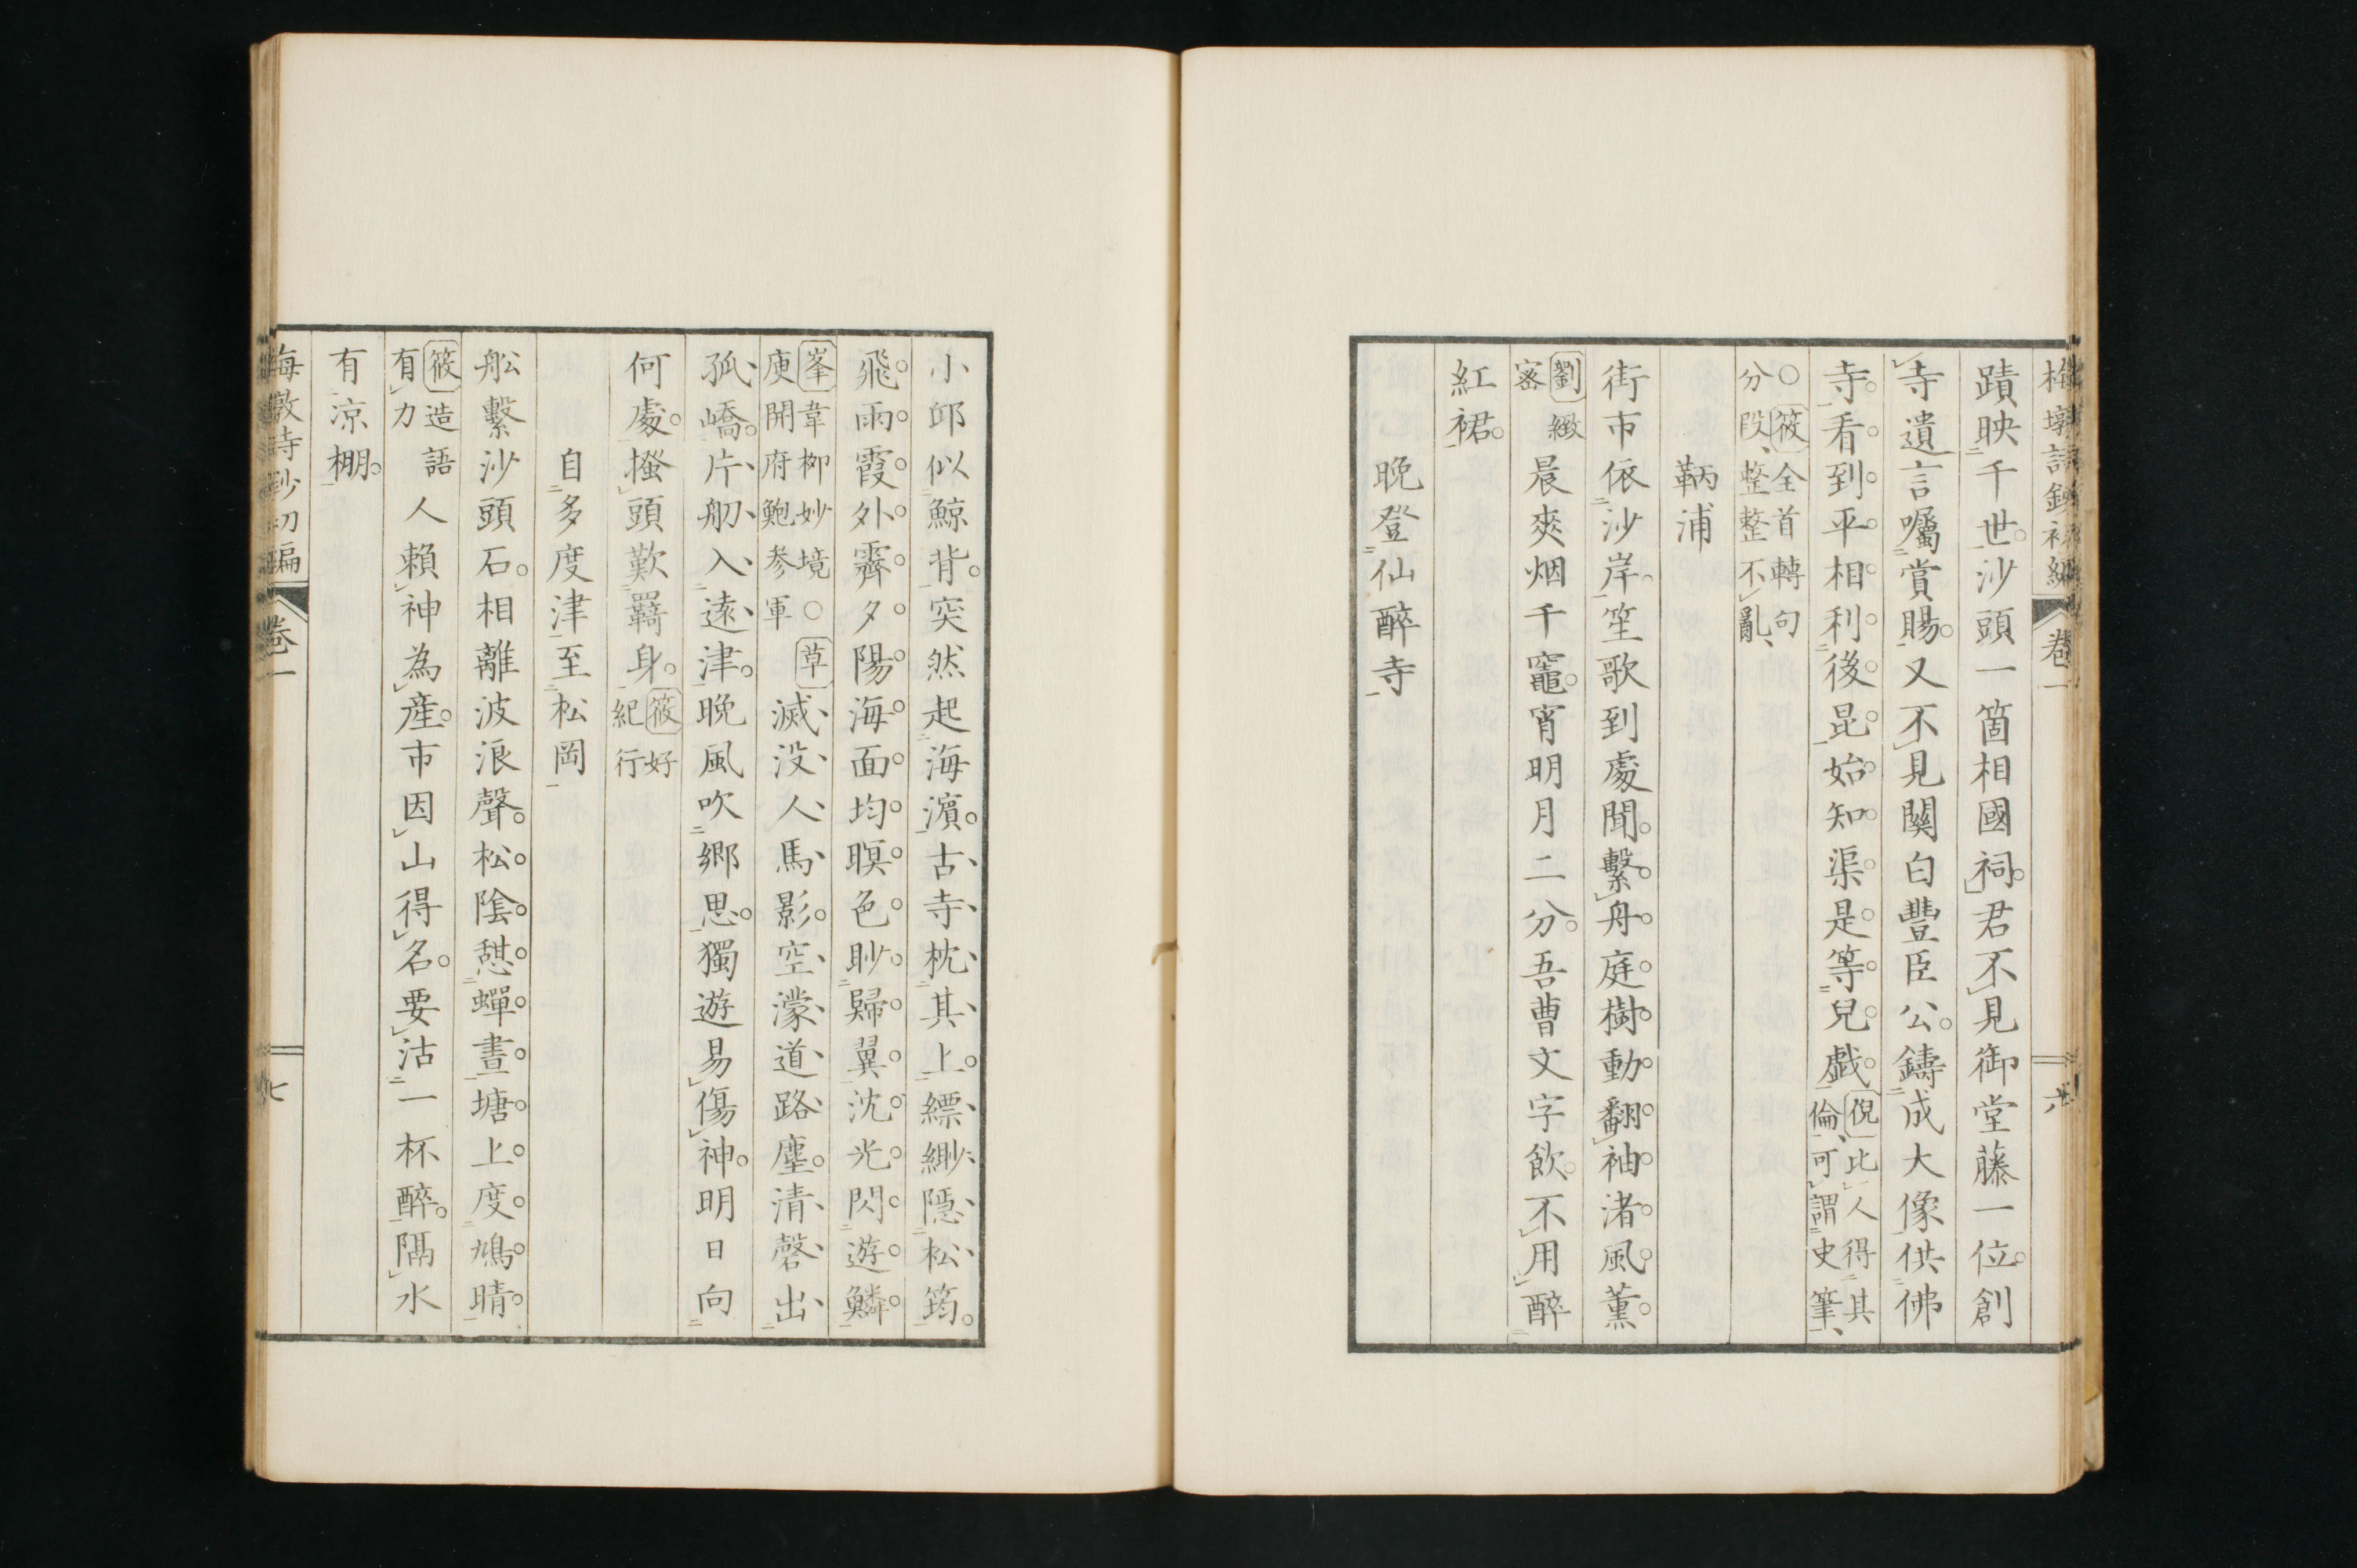 梅墩詩鈔初編 卷一 六
蹟映千世。沙頭一箇相國祠。君不見御堂藤一位。創
寺遺言囑賞賜。又不見關白豐臣公。鑄成大像供佛
寺。看到平相利後昆。始知渠是等兒戯。倪比人得其倫、可謂史筆、
○筱全首轉句分段、整整不亂、
鞆浦
街市依沙岸。笙歌到處聞。繫舟庭樹動。翻袖渚風薰。
劉緻密 晨爽烟千竈。宵明月二分。吾曹文字飲。不用醉
紅裙。
晩登仙醉寺
小邱似鯨背。突然起海濱。古寺枕其上。縹緲隱松筠。
飛雨霞外霽。夕陽海面均。暝色眇歸翼。沈光閃遊鱗。
峯韋柳妙境○草庾開府鮑参軍 滅没人馬影。空濛道路塵。清磬出
孤嶠。片舠入遠津。晩風吹郷思。獨遊易傷神。明日向
何處。搔頭歎羇身。筱好紀行
自多度津至松岡
舩繫沙頭石。相離波浪聲。松陰憇蟬晝。塘上度鳩晴。
筱造語有力 人賴神為産。市因山得名。要沽一杯醉。隔水
有凉棚。
梅墩詩鈔初編 卷一 七